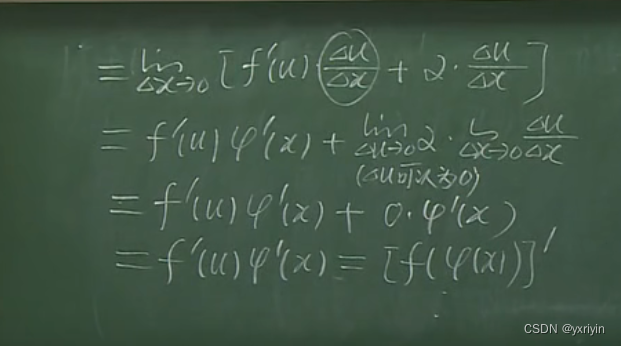 = lim Δx→0 [f'(u) Δu/Δx + α · Δu/Δx]
= f'(u) φ'(x) + lim Δu→0 α · lim Δx→0 Δu/Δx
(Δu可以为0)
= f'(u) φ'(x) + 0·φ'(x)
= f'(u) φ'(x) = [f(φ(x))]'
CSDN @yxriyin